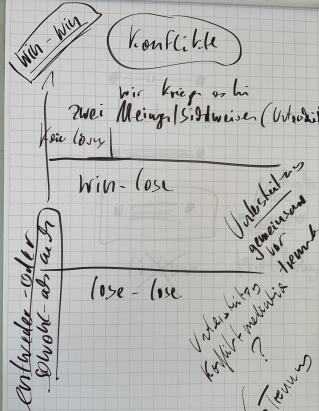 win - win
Konflikte
wir kriegen es hin
zwei Meinung/Sichtweisen (Unterschied
Kein Lösung
win - lose
lose - lose
entweder - oder
sowohl - als auch
Unterscheidung
gemeinsam
vor
trennt
Unterscheidung
Konflikt
?
Trennung